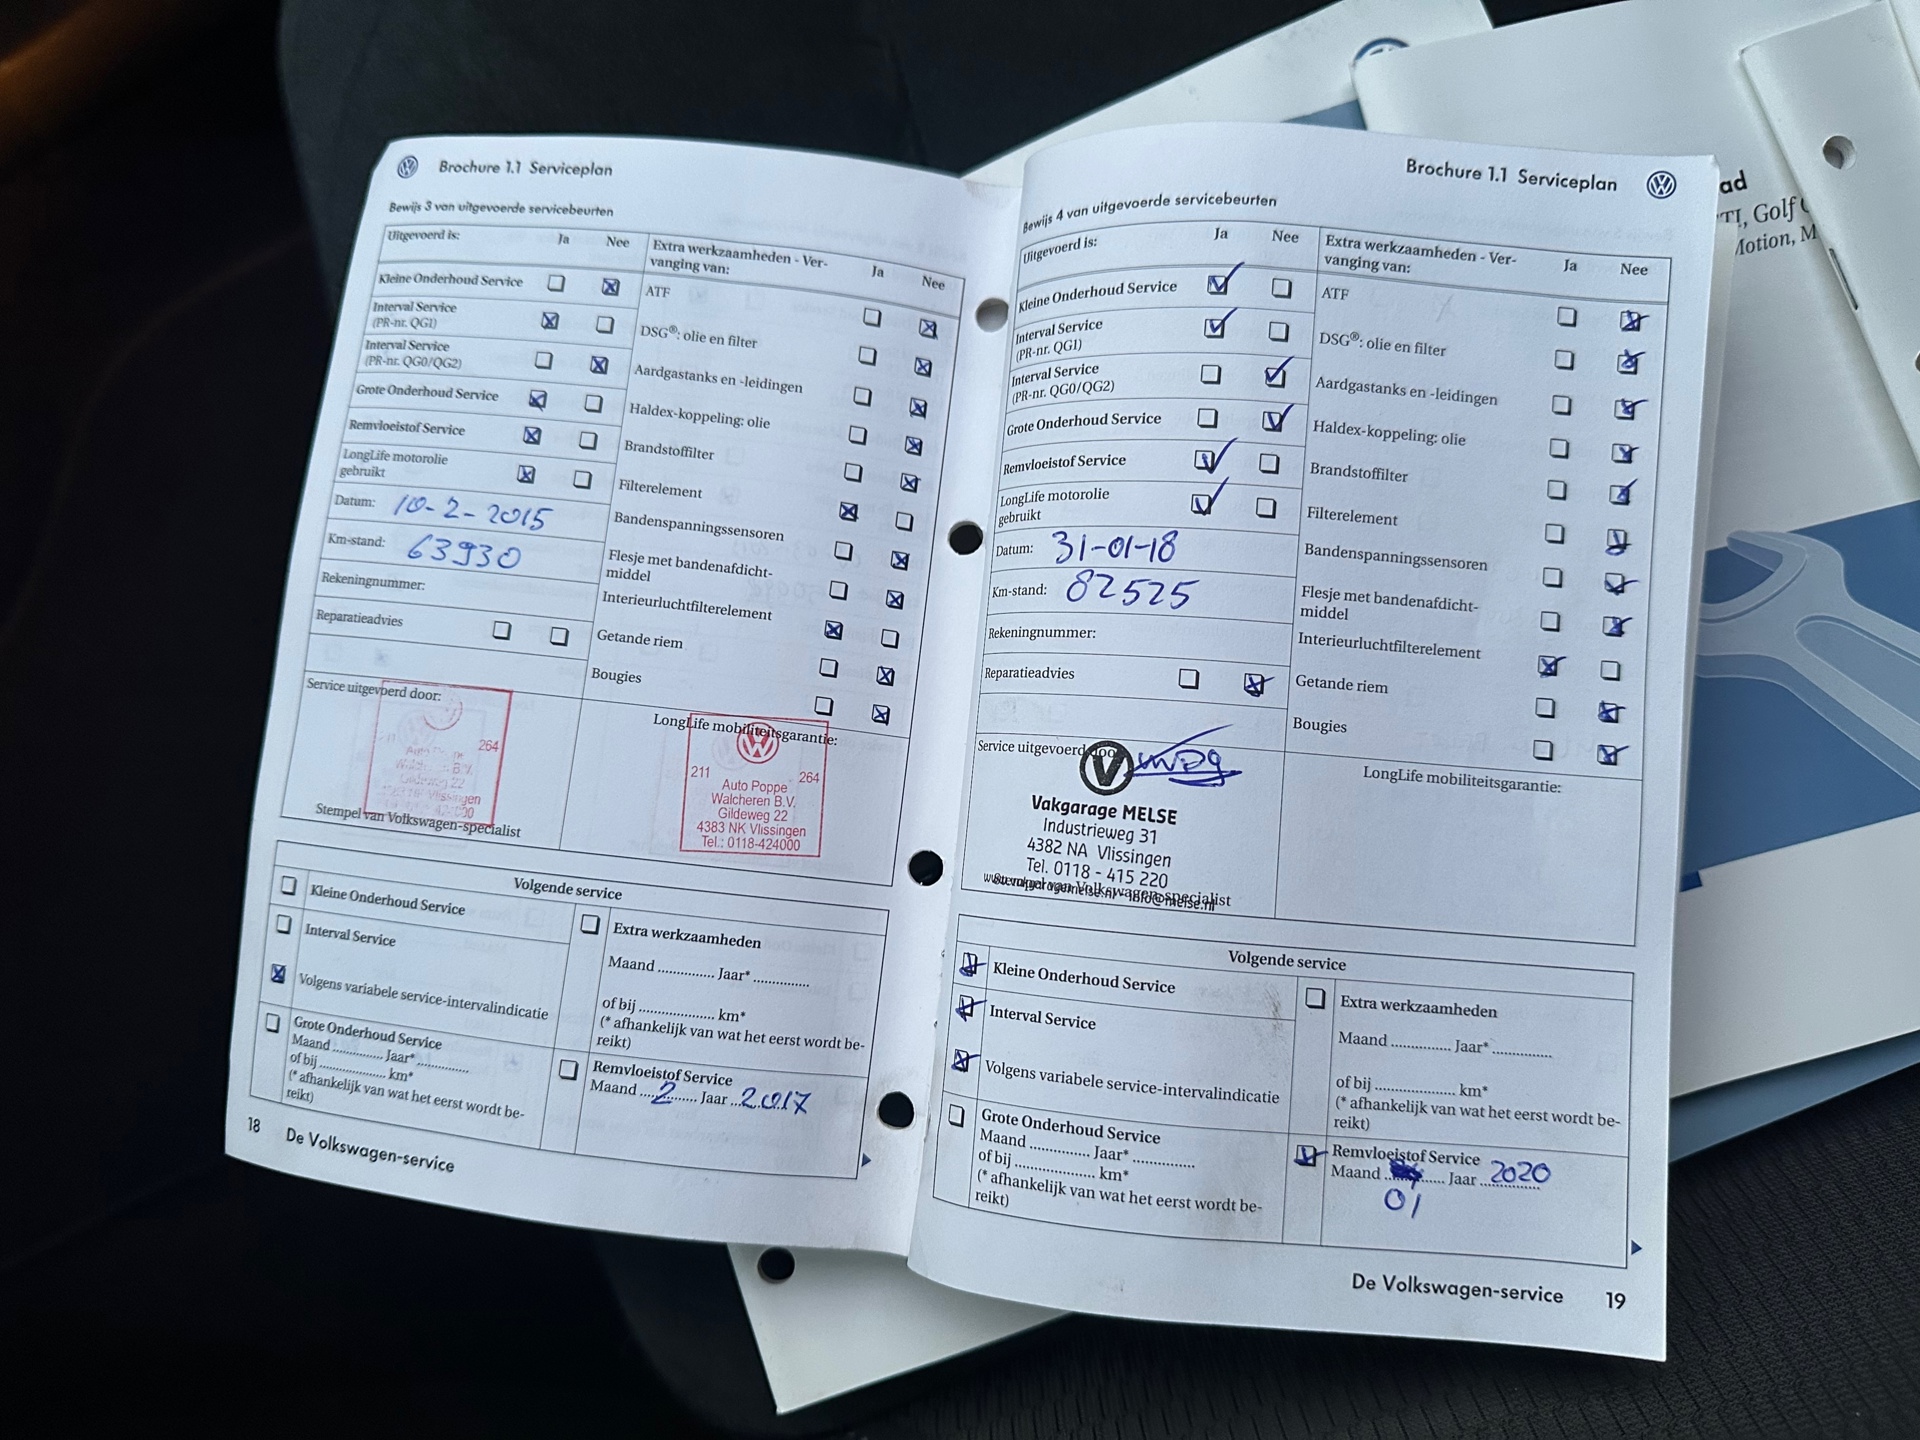 Brochure 1.1 Serviceplan
Bewijs 3 van uitgevoerde servicebeurten
Uitgevoerd is: Ja Nee
Kleine Onderhoud Service
Interval Service
(PR-nr. QG1)
Interval Service
(PR-nr. QG0/QG2)
Grote Onderhoud Service
Remvloeistof Service
LongLife motorolie
gebruikt
Datum: 10-2-2015
Km-stand: 63930
Rekeningnummer:
Reparatieadvies
Extra werkzaamheden - Ver-
vanging van: Ja Nee
ATF
DSG®: olie en filter
Aardgastanks en -leidingen
Haldex-koppeling: olie
Brandstoffilter
Filterelement
Bandenspanningssensoren
Flesje met bandenafdicht-
middel
Interieurluchtfilterelement
Getande riem
Bougies
Service uitgevoerd door:
264
Gildeweg 22
Vlissingen
Stempel van Volkswagen-specialist
LongLife mobiliteitsgarantie:
211 264
Auto Poppe
Walcheren B.V.
Gildeweg 22
4383 NK Vlissingen
Tel.: 0118-424000
Volgende service
Kleine Onderhoud Service
Interval Service
Volgens variabele service-intervalindicatie
Grote Onderhoud Service
Maand .............. Jaar* ..............
of bij .................... km*
(* afhankelijk van wat het eerst wordt be-
reikt)
Extra werkzaamheden
Maand .............. Jaar* ..............
of bij .................... km*
(* afhankelijk van wat het eerst wordt be-
reikt)
Remvloeistof Service
Maand 2 Jaar 2017
18 De Volkswagen-service
Brochure 1.1 Serviceplan
Bewijs 4 van uitgevoerde servicebeurten
Uitgevoerd is: Ja Nee
Kleine Onderhoud Service
Interval Service
(PR-nr. QG1)
Interval Service
(PR-nr. QG0/QG2)
Grote Onderhoud Service
Remvloeistof Service
LongLife motorolie
gebruikt
Datum: 31-01-18
Km-stand: 82525
Rekeningnummer:
Reparatieadvies
Extra werkzaamheden - Ver-
vanging van: Ja Nee
ATF
DSG®: olie en filter
Aardgastanks en -leidingen
Haldex-koppeling: olie
Brandstoffilter
Filterelement
Bandenspanningssensoren
Flesje met bandenafdicht-
middel
Interieurluchtfilterelement
Getande riem
Bougies
Service uitgevoerd door
Vakgarage MELSE
Industrieweg 31
4382 NA Vlissingen
Tel. 0118 - 415 220
Stempel van Volkswagen-specialist
LongLife mobiliteitsgarantie:
Volgende service
Kleine Onderhoud Service
Interval Service
Volgens variabele service-intervalindicatie
Grote Onderhoud Service
Maand .............. Jaar* ..............
of bij .................... km*
(* afhankelijk van wat het eerst wordt be-
reikt)
Extra werkzaamheden
Maand .............. Jaar* ..............
of bij .................... km*
(* afhankelijk van wat het eerst wordt be-
reikt)
Remvloeistof Service
Maand Jaar 2020
01
De Volkswagen-service 19
ad
TI, Golf
Motion, M